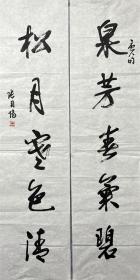 泉芳春氣碧
松月寒色清